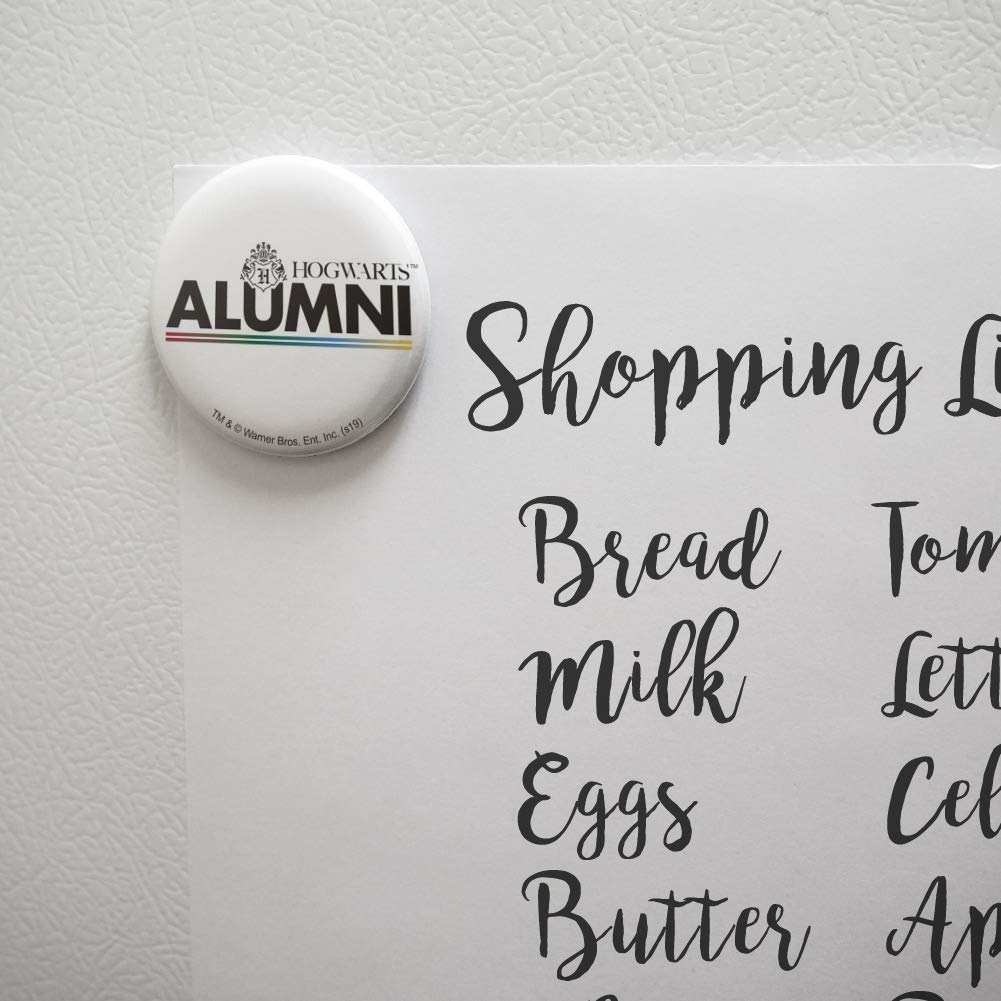 HOGWARTS™
ALUMNI
TM & © Warner Bros. Ent. Inc. (s19)
Shopping
Bread
Milk
Eggs
Butter